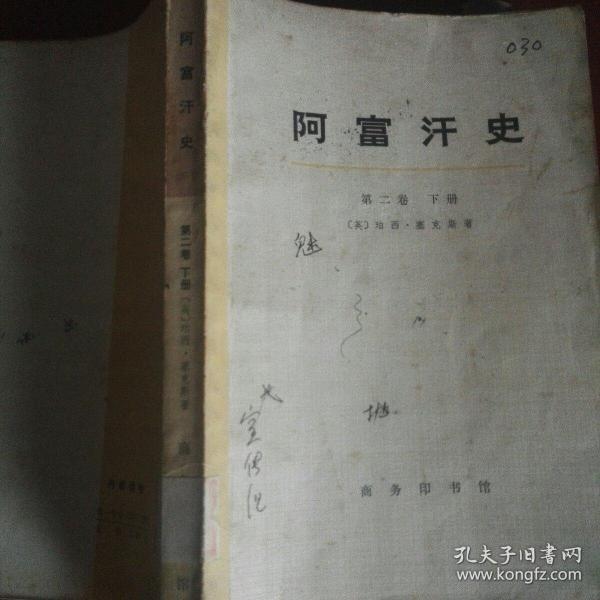 030
阿富汗史
第二卷 下册
〔英〕珀西·塞克斯著
魅
商务印书馆
阿富汗史
第二卷 下册 〔英〕珀西·塞克斯著 商
馆
孔夫子旧书网
www.kongfz.com